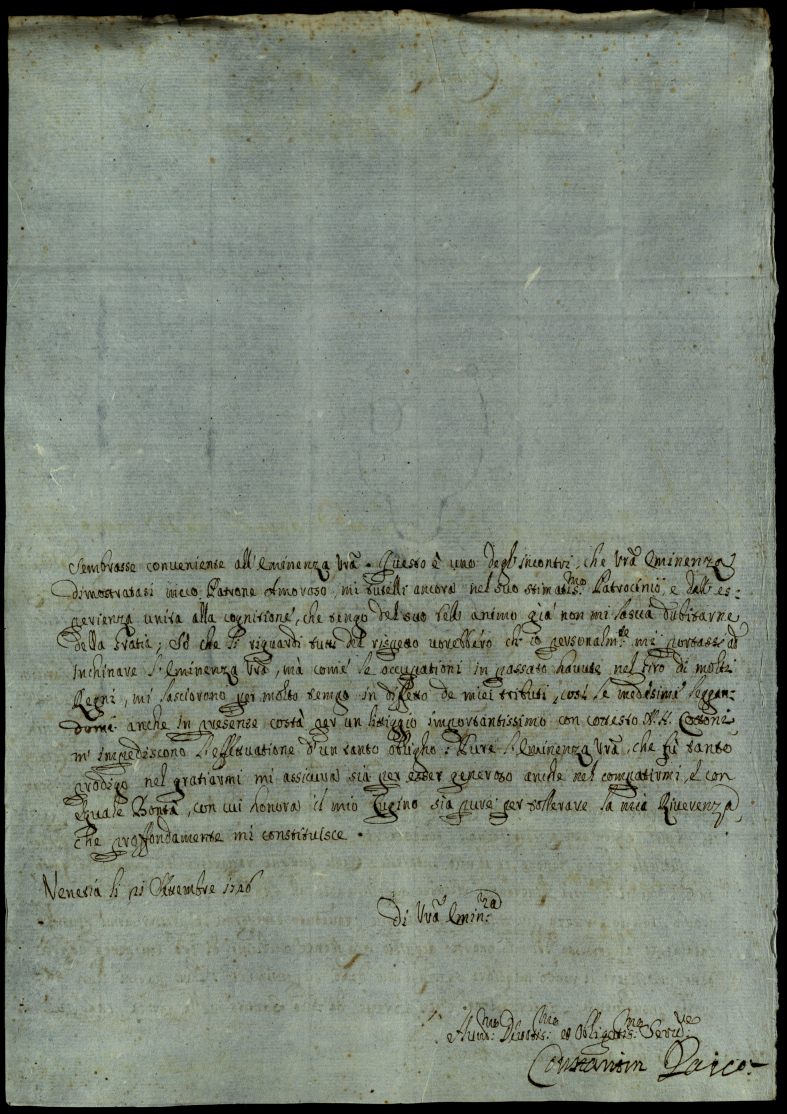 sembrasse conveniense all'Eminenza Vrã. Questo è uno degl'incontri, che Vrã Eminenza
dimostratasi meco Patrone Amoroso, mi tutelli ancora nel suo stimatis.mo Patrocinio, e dall'es=
perienza unita alla cognitione, che tengo del suo bell'animo già non mi lascia dubitarne
della Gratia; Sò che li riguardi tuti del rispetto vorebbero ch'io personalm.te mi portassi ad
Inchinare l'Eminenza Vrã, mà come le occupationi in passato havute nel Giro di molti
Regni, mi lasciorono per molto tempo in diffetto de miei tributi, così le medesime
anche in presense costà per un litiggio importantissimo con cotesto N. H. Cottoni
m'impediscono l'effetuatione d'un tanto obligho: Pure l'Eminenza Vrã, che fù tanto
prodigo nel gratiarmi mi assicura sia per esser generoso anche nel compatirmi, e con
eguale Bontà, con cui honora il mio Cugino sia pure per tollerare la mia Riverenza,
che proffondamente mi constituisce.
Venesia li 21 Settembre 1726
Di Vrã Emin.za
Hum.mo Divotis.mo et Obligatis.mo Serv.re
Constantin